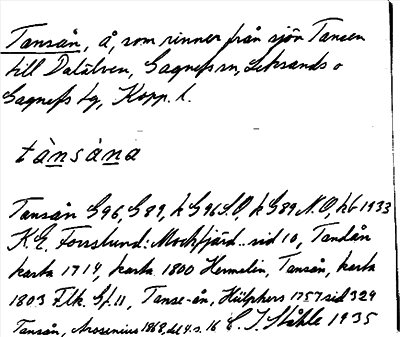 Tansån, å, som rinner från sjön Tansen
till Dalälven, Gagnefs sn, Leksands o
Gagnefs tg, Kopp. l.
tànsåna
Tansån G96, G89, k G96 S.O, k G89 N.O, kb 1933
K.E. Forsslund: Mockfjärd.. sid 10, Tandån
karta 1714, karta 1800 Hermelin, Tansån, karta
1803 Flk. Gf. 11, Tanse-ån, Hülphers 1757 sid 329
Tansån, Arosenius 1868, del 4. s. 16 C. I. Ståhle 1935